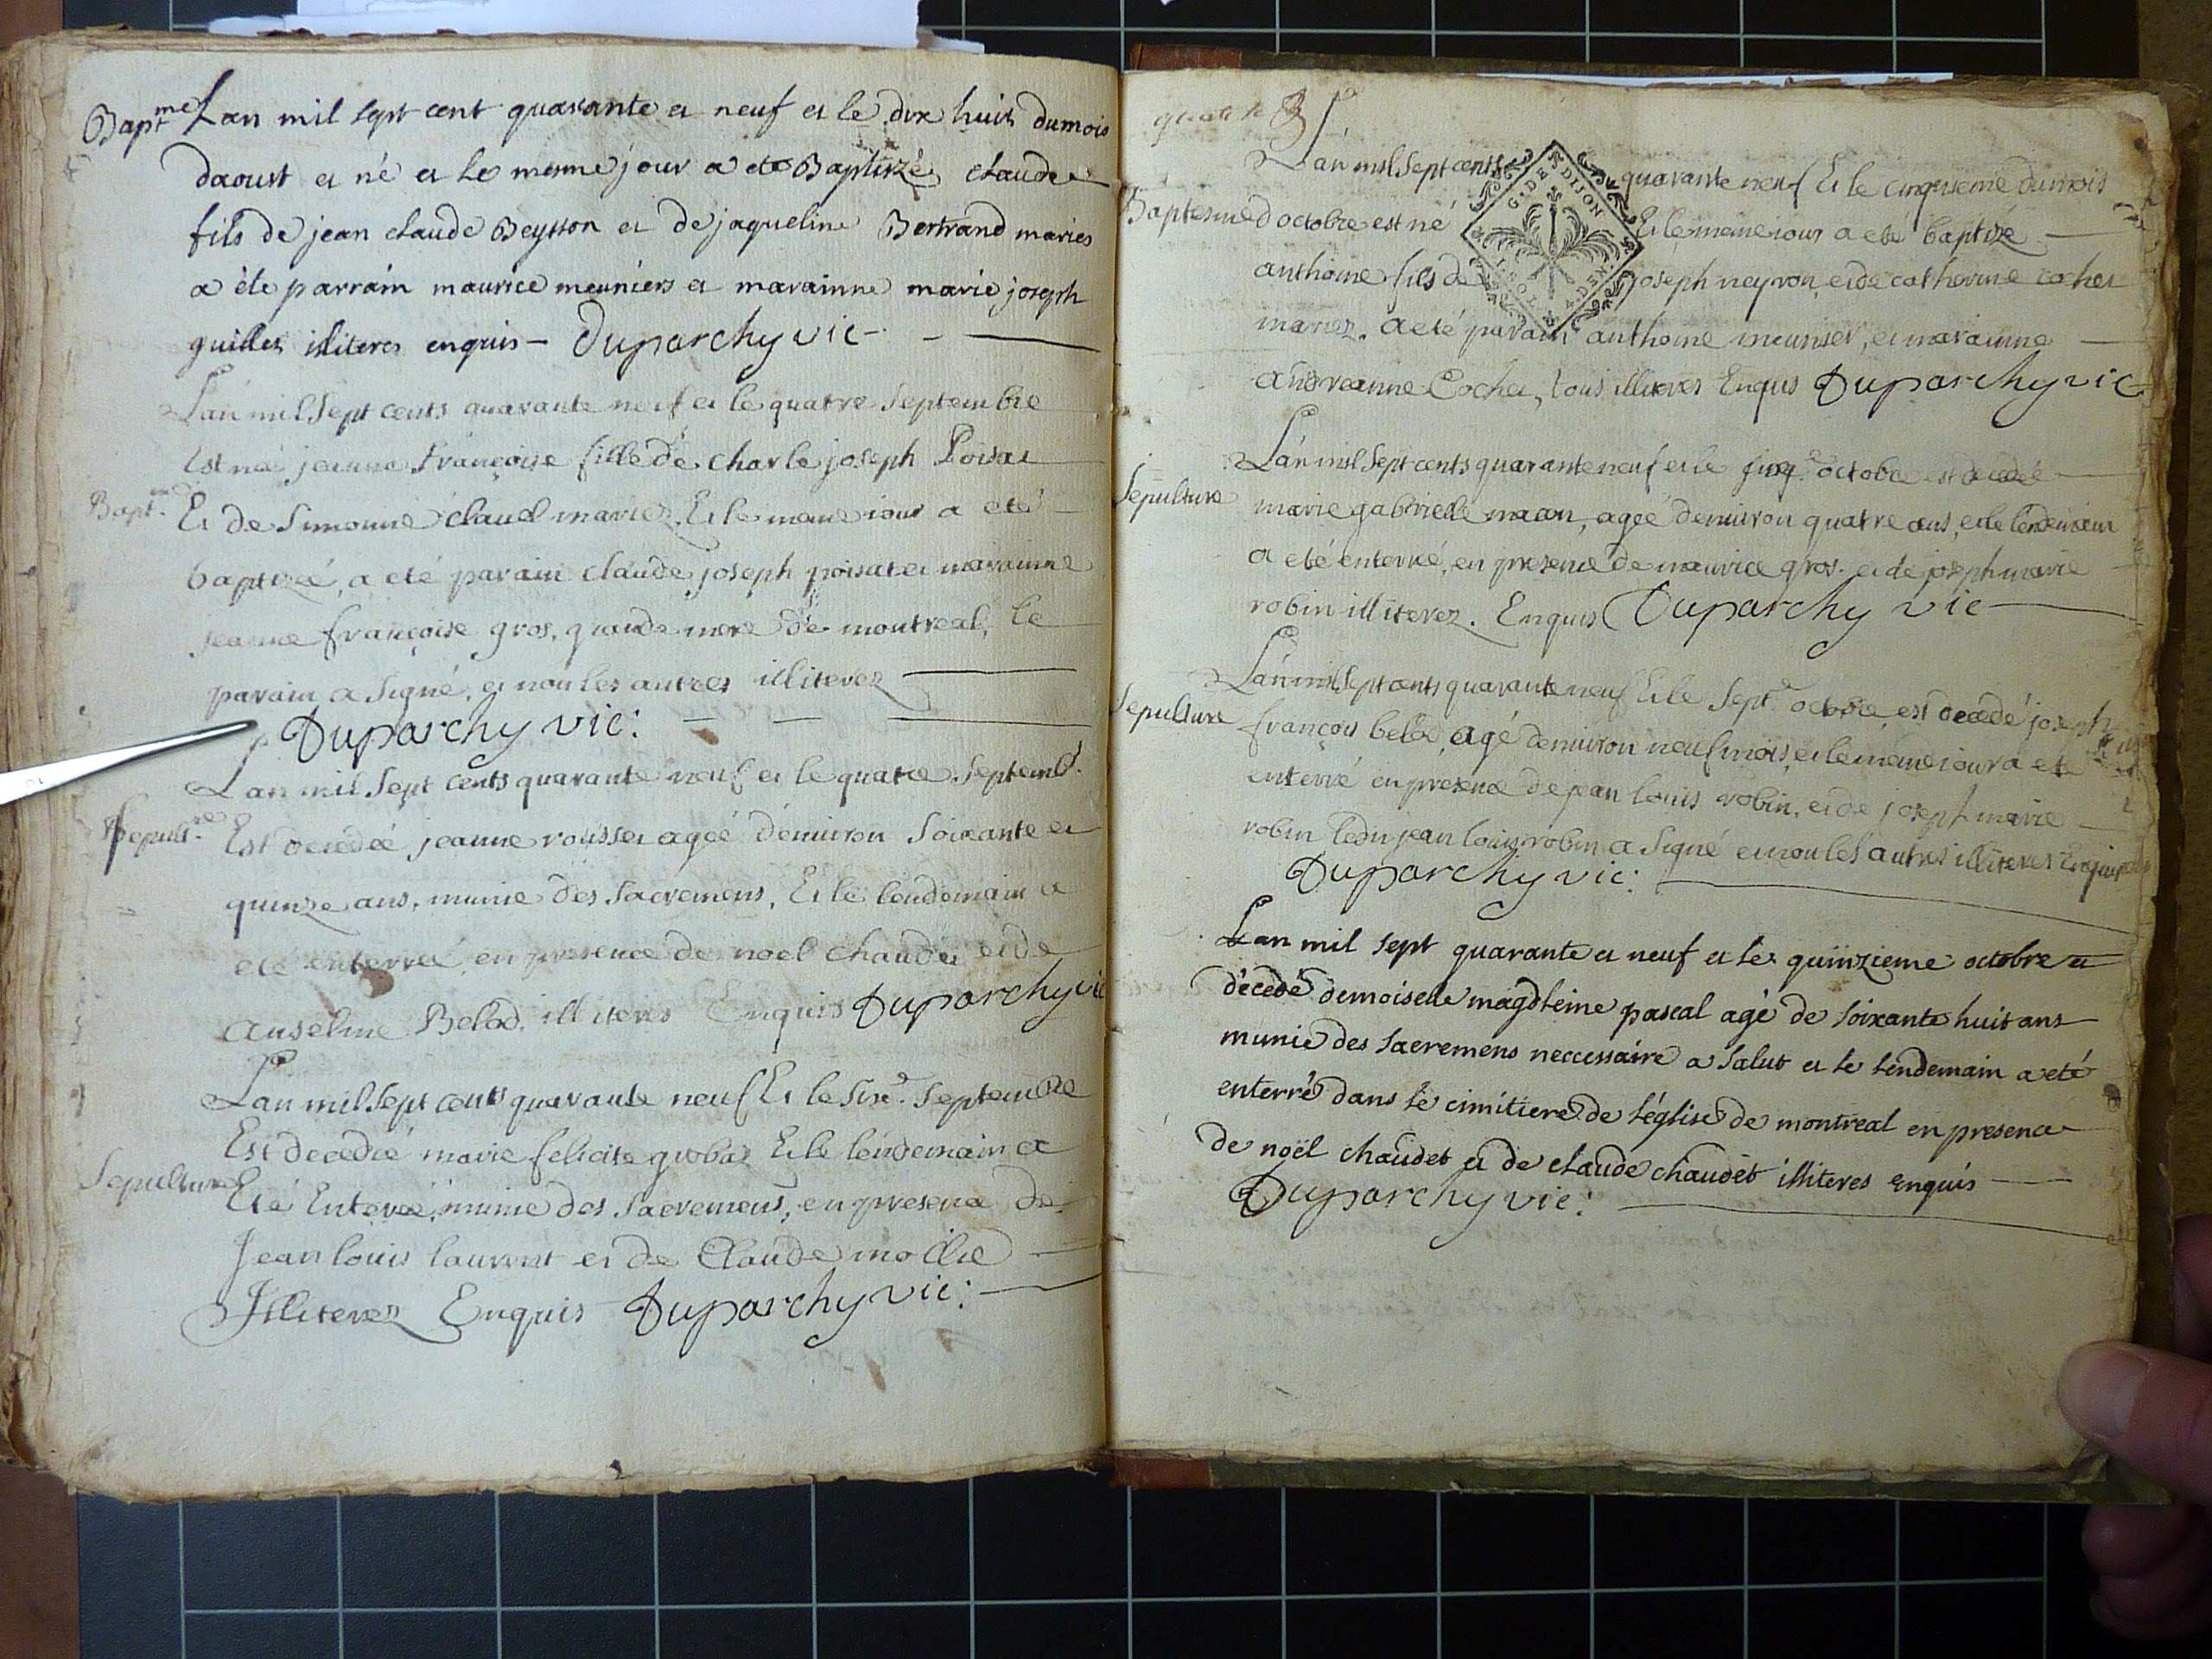 Bapt.me Lan mil sept cent quarante et neuf et le dix huit du mois
daoust et né et le mesme jour a ete Baptizé claude
fils de jean claude Beysson et de jaqueline Bertrand maries
a éte parrain maurice meuniers et marainne marie joseph
guillet illiteres enquis – Duparchy vic.
Lán mil Sept cents quarante neuf et le quatre Septembre
Est née jeanne Françoise fille de charle joseph Poisat
Bapt.
Et de Simonne claud mariez. Et le meme jour a eté
baptizé, a eté parain claude joseph poisat et marainne
jeanne françoise gros, grande mere de montreal, le
parain a Signé, et non les autres illiterez
Duparchy vic:
Lan mil Sept cents quarante neuf et le quatre Septemb.
Sepult.re Est decedée jeanne rousset ageé denviron Soixante et
quinze ans, munie des Sacremens, Et le lendemain a
eté enterreé, en presence de noel chaudet et de
anselme Belod, illiteres Enquis Duparchy vic
Lan mil Sept cents quarante neuf Et le Six.e Septembre
Est decedeé marie felicite grobaz Et le lendemain a
Sepulture
Eté Enterreé, munie des Sacremens, en presence de
Jean louis laurent et de Claude mollie
Illiterez Enquis Duparchy vic:
G. DE DIJON
Lán mil Sept cents quarante neuf Et le cinquieme du mois
Baptesme d octobre est né Et le meme jour a eté baptizé
anthoine fils de joseph neyron, et de catherine cochet
mariez. a eté parain anthoine meunier, et marainne
andreanne Cochet, tous illiteres Enquis Duparchy vic
Lán mil Sept cents quarante neuf et le octobre est decedé
Sepulture
marie gabrielle macon, ageé denviron quatre ans, et le lendemain
a eté enterreé, en presence de maurice gros. et de joseph marie
robin illiterez. Enquis Duparchy vic
Lán mil Sept cents quarante neuf Et le Sept.e octobre est decedé joseph
Sepulture
françois belod, agé denviron neuf mois, et le meme jour a eté
enterré en presence de jean louis robin, et de joseph marie
robin ledit jean louis robin a Signé et non les autres illiteres Enquis
Duparchy vic:
Lan mil sept quarante et neuf et le quinzieme octobre et
décedé demoiselle magdleine pascal agé de soixante huit ans
munie des sacremens neccessaire a salut et le lendemain a eté
enterré dans le cimitiere de léglise de montreal en presence
de noël chaudet et de claude chaudet illiteres enquis
Duparchy vic: